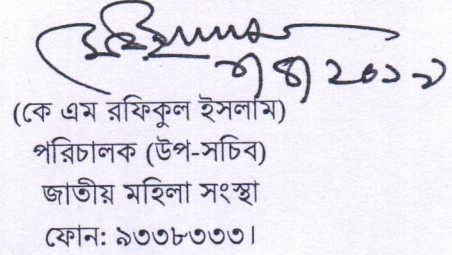 (কে এম রফিকুল ইসলাম)
পরিচালক (উপ-সচিব)
জাতীয় মহিলা সংস্থা
ফোন: ৯৩৩৮৩৩৩।